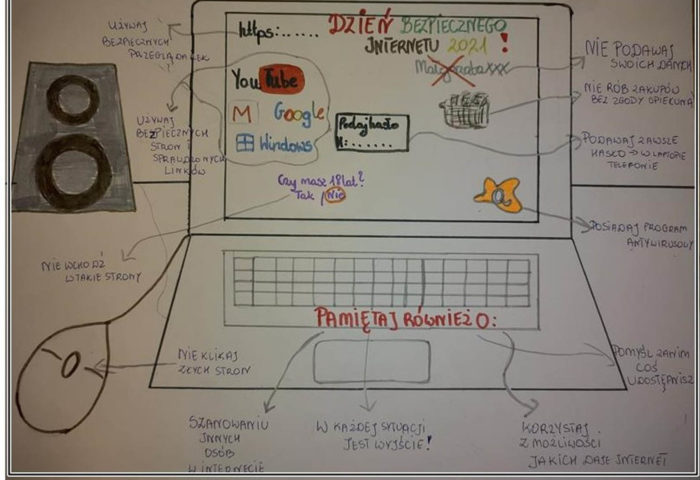 https:......
DZIEŃ BEZPIECZNEGO
INTERNETU 2021 !
UŻYWAJ
BEZPIECZNYCH
PRZEGLĄDAREK
NIE PODAWAJ
SWOICH DANYCH
YouTube
M Google
Windows
Podaj hasło
NIE RÓB ZAKUPÓW
BEZ ZGODY OPIEKUNA
UŻYWAJ
BEZPIECZNYCH
STRON I
SPRAWDZONYCH
LINKÓW
PODAWAJ ZAWSZE
HASŁO → W LAPTOPIE
TELEFONIE
Czy masz 18 lat?
Tak / Nie
POSIADAJ PROGRAM
ANTYWIRUSOWY
NIE WCHODŹ
W TAKIE STRONY
PAMIĘTAJ RÓWNIEŻ O:
NIE KLIKAJ
ZŁYCH STRON
POMYŚL ZANIM
COŚ
UDOSTĘPNISZ
SZANOWANIU
INNYCH
OSÓB
W INTERNECIE
W KAŻDEJ SYTUACJI
JEST WYJŚCIE!
KORZYSTAJ
Z MOŻLIWOŚCI
JAKICH DAJE INTERNET